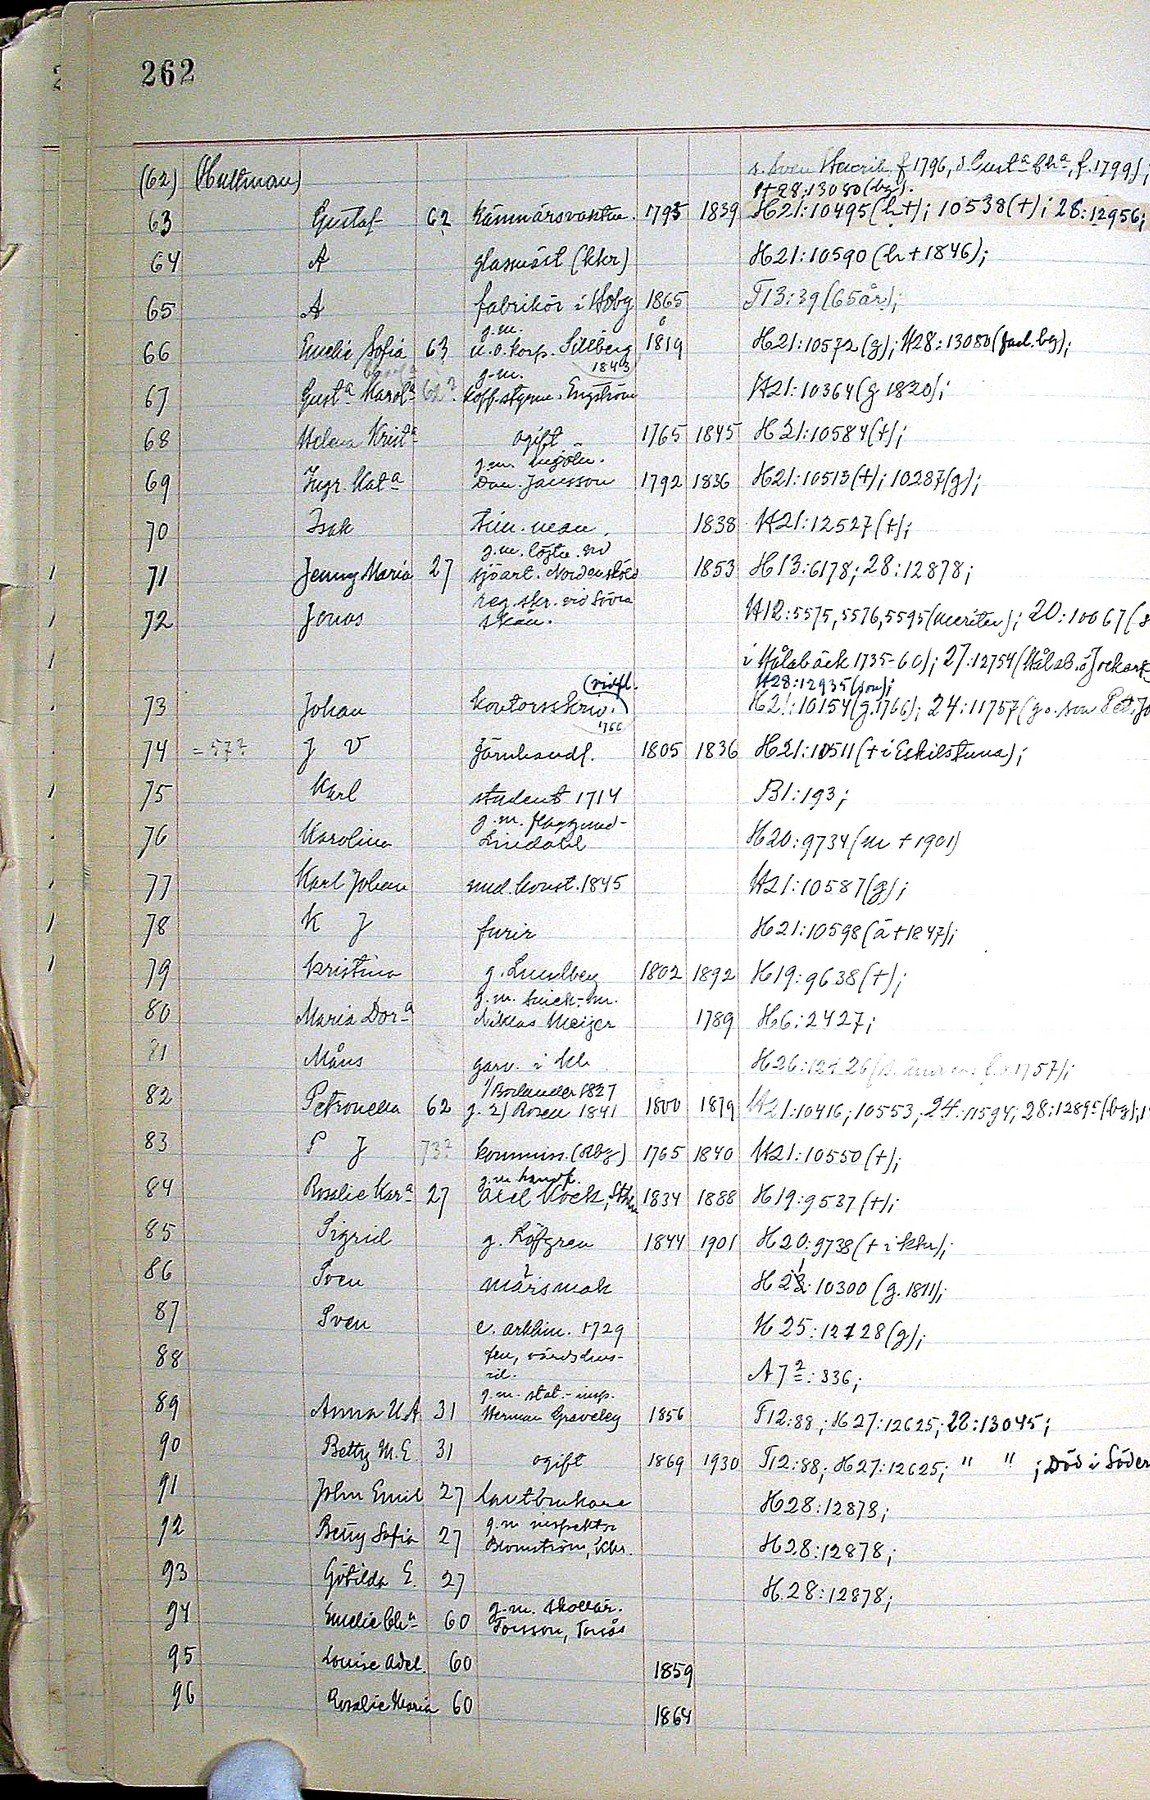 262
(62) (Hultman) s. Sven Henrik, f. 1796, d Gustᵃ Chᵃ, f. 1799);
H28:13080(bg).
63 Gustaf 62 Kämnärsvaktm. 1793 1839 H21:10495(h+); 10538(+); 28:12956;
64 A glasmäst (kkr) H21:10590 (h+1846);
65 A fabrikör i Hbg 1865 T13:39 (65år);
g.m.
66 Emelie Sofia 63 u.o.korp. Sillberg 1819 H21:10572 (g); H28:13080 (fad. bg);
1843
g.m.
67 Gustᵃ Karolᵃ 62? koff. styrm. Engström H21:10364 (g 1820);
68 Helena Kristᵃ ogift 1765 1845 H21:10584(+);
g.m.
69 Ingr. Katᵃ Dan. Jansson 1792 1836 H21:10513(+); 10287(g);
70 Isak tim. man. 1838 H21:12527(+);
g.m. löjtn. vid
71 Jenny Maria 27 sjöart. Nordensköld 1853 H13:6178; 28:12878;
reg. skr. vid Södra
72 Jonas Skån. H12:5575, 5576, 5595 (meriter); 20:10067 (s
i Hålabäck 1735-60); 27:12754 (Hålab. o Jockark
(vidfl. H28:12935 (son);
73 Johan kontorsskriv. H21:10154 (g. 1766); 24:11757 (g.o. son Pet. Jo
1766
74 = 57? J V Järnhandl. 1805 1836 H21:10511 (+ i Eskilstuna);
75 Karl student 1714 B1:193;
g.m. flaggund-
76 Karolina Lindahl H20:9734 (m + 1901)
77 Karl Johan und. konst. 1845 H21:10587(g);
78 K J furir H21:10598 (ä+1847);
79 Kristina g. Lundberg 1802 1892 H19:9638(+);
g.m. snick.-m.
80 Maria Dorᵃ Niklas Meijer 1789 H6:2427;
81 Måns garv. i kkr 1757);
1/ Borlander 1827
82 Petronella 62 g. 2/ Rosen 1841 1800 1879 H21:10416; 10553; 24:11594; 28:12895 (bg);
83 P J 73? kommiss. (Kbg) 1765 1840 H21:10550 (+);
g.m. handl.
84 Rosalie Karᵃ 27 Axel Kock, Sthm 1834 1888 H19:9537(+);
85 Sigrid g. Löfgren 1844 1901 H20:9738 (+ i kkr);
86 Sven märsmak H21:10300 (g. 1811);
87 Sven e. arklim. 1729 H25:12728 (g);
88 A 7²:336;
g.m. stat.-insp.
89 Anna U.A. 31 Herman Graveley 1856 T12:88; H27:12625; 28:13045;
90 Betty M.E. 31 ogift 1869 1930 T12:88; H27:12625; " " ; Död i Söder
91 John Emil 27 lantbrukare H28:12878;
g.m inspektor
92 Betty Sofia 27 Blomström, kkr. H28:12878;
93 Götilda E. 27 H.28:12878;
g.m. skollär.
94 Emelie Chᵃ 60 Jonsson, Torsås
95 Louise Adel. 60 1859
96 Rosalie Maria 60 1864